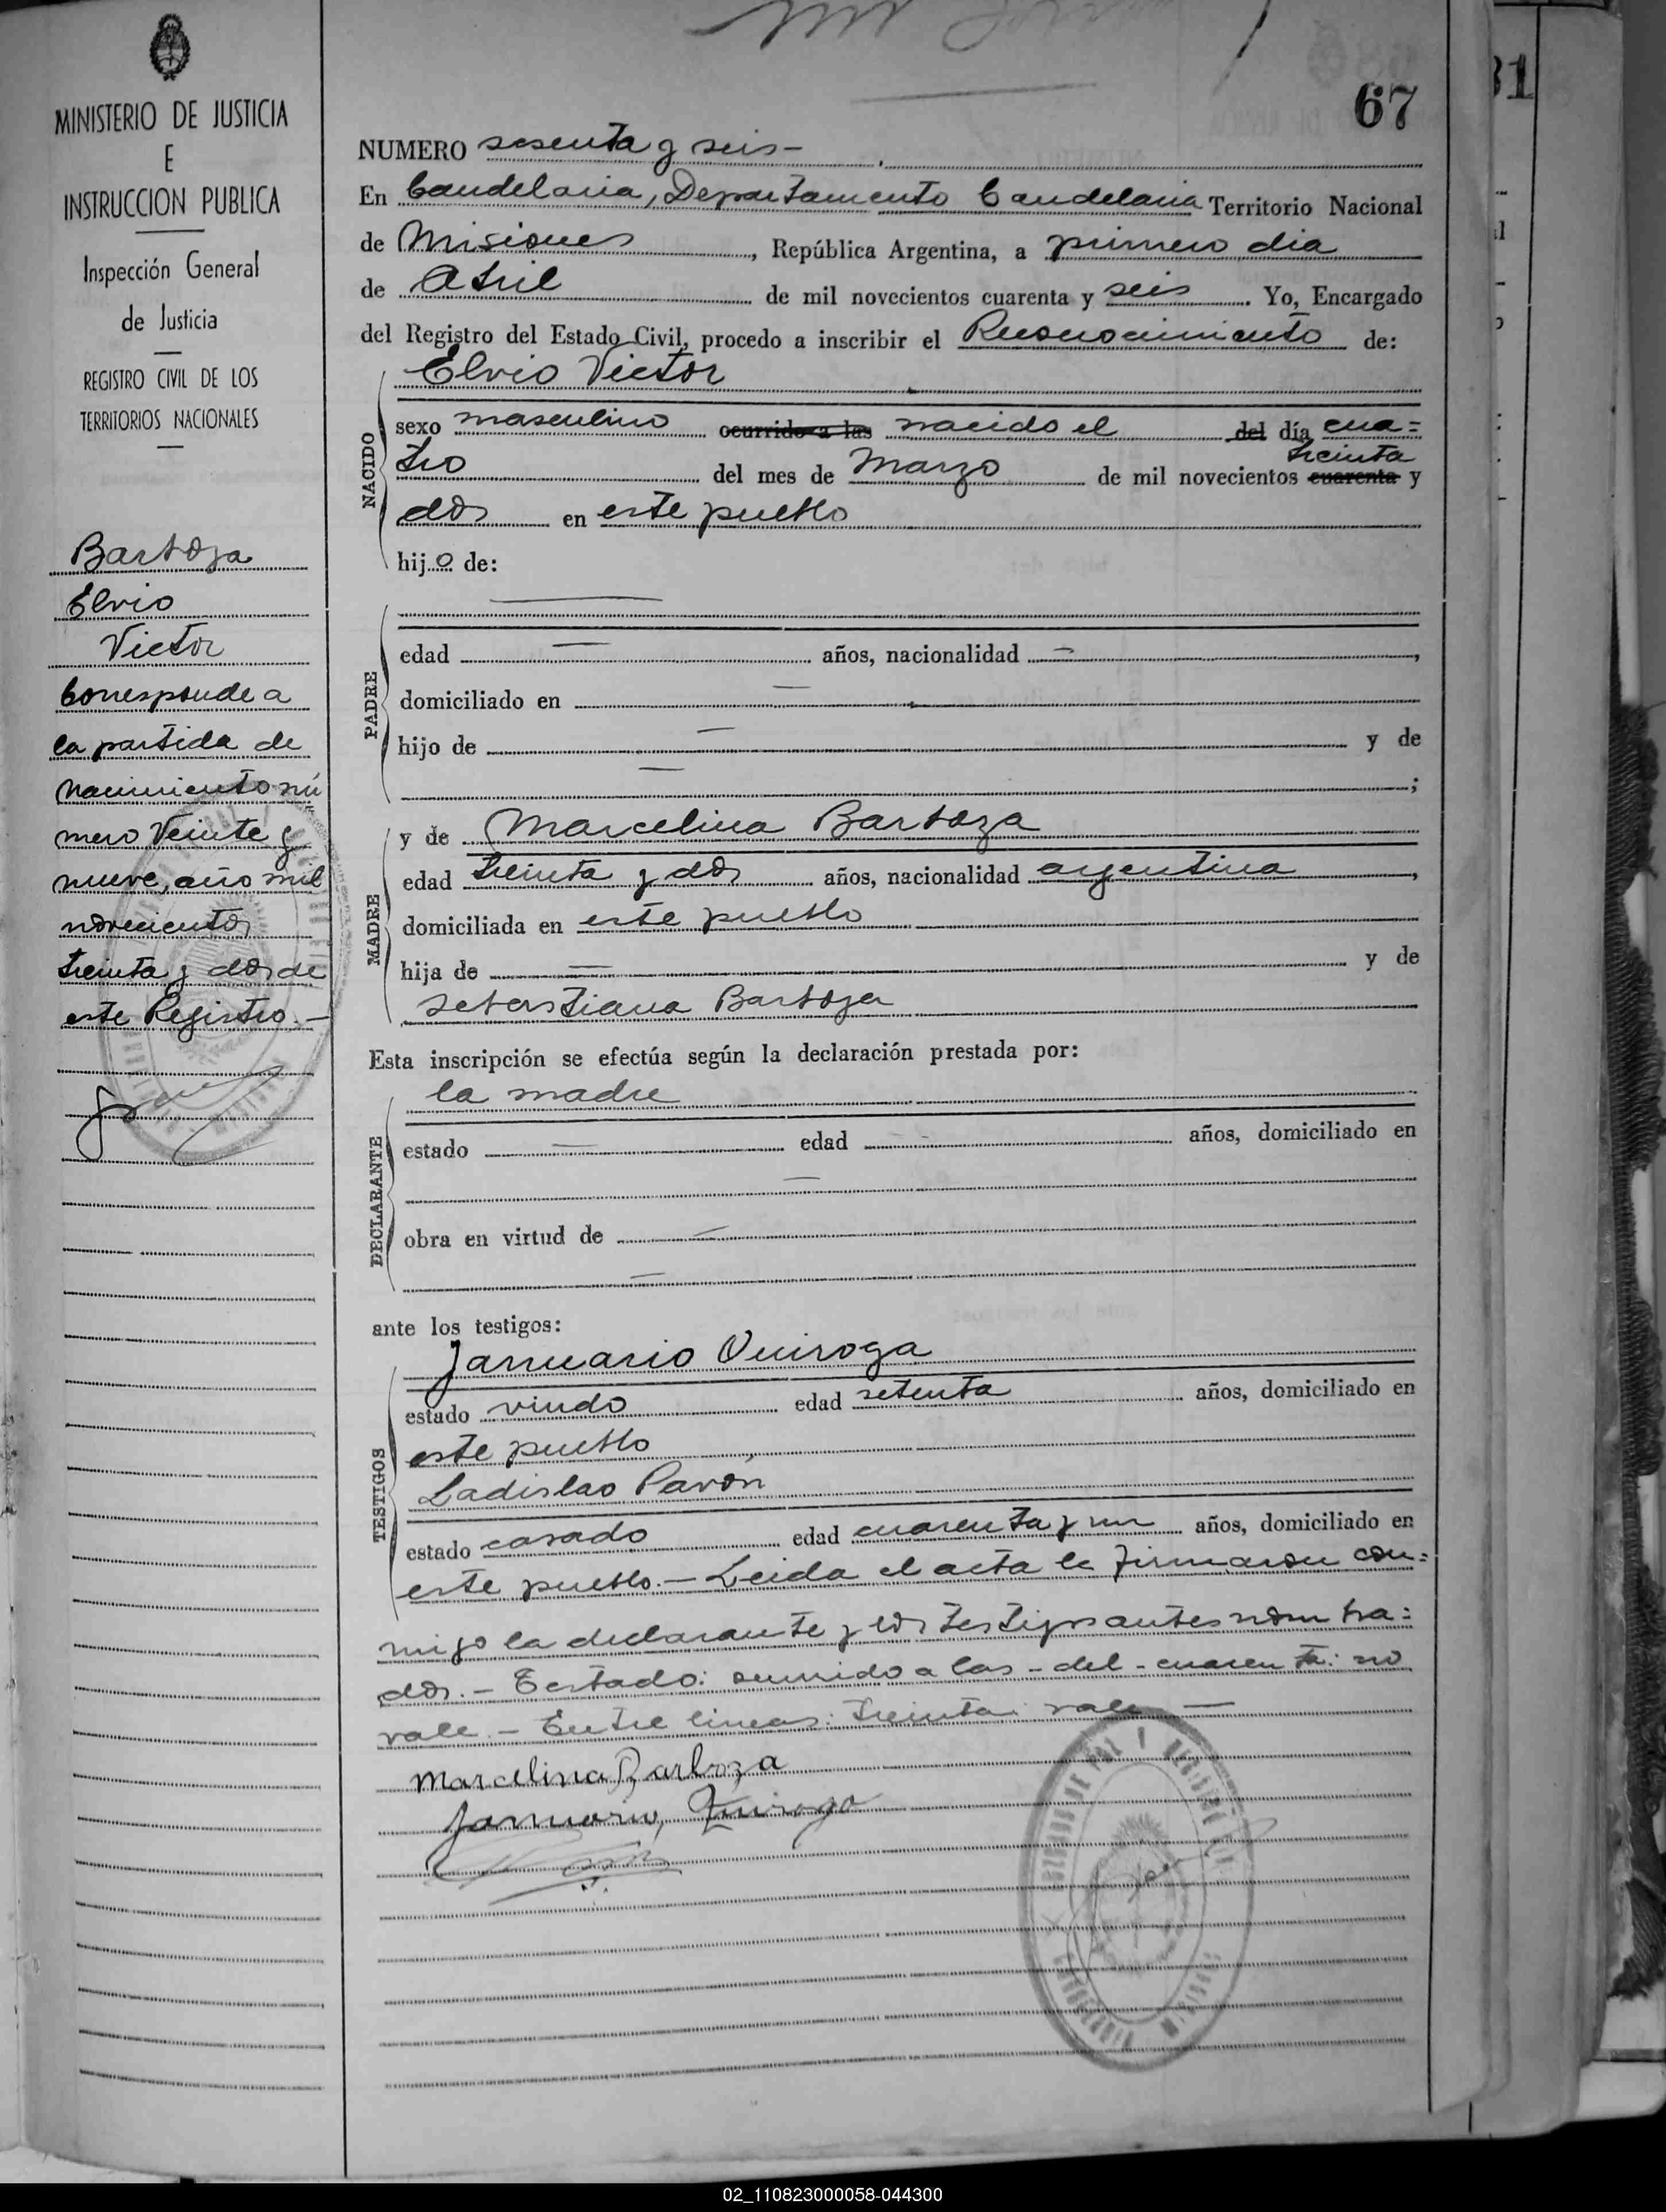 MINISTERIO DE JUSTICIA
E
INSTRUCCION PUBLICA
Inspección General
de Justicia
REGISTRO CIVIL DE LOS
TERRITORIOS NACIONALES
Barboza
Elvio
Victor
Corresponde a
la partida de
nacimiento nú
mero Veinte y
nueve, año mil
novecientos
treinta y dos de
este Registro.-
67
31
NUMERO sesenta y seis-
En Candelaria, Departamento Candelaria Territorio Nacional
de Misiones, República Argentina, a primero dia
de Abril de mil novecientos cuarenta y seis. Yo, Encargado
del Registro del Estado Civil, procedo a inscribir el Reconocimiento de:
Elvio Victor
NACIDO
sexo masculino ocurrido a las nacido el del día cua=
treinta
tro del mes de Marzo de mil novecientos cuarenta y
dos en este pueblo
hijo de:
PADRE
edad — años, nacionalidad —,
domiciliado en —
hijo de — y de
— ;
MADRE
y de Marcelina Barboza
edad treinta y dos años, nacionalidad argentina,
domiciliada en este pueblo
hija de — y de
Sebastiana Barboza
Esta inscripción se efectúa según la declaración prestada por:
DECLARANTE
la madre
estado — edad — años, domiciliado en
—
obra en virtud de —
—
ante los testigos:
TESTIGOS
Januario Quiroga
estado viudo edad setenta años, domiciliado en
este pueblo
Ladislao Pavón
estado casado edad cuarenta y un años, domiciliado en
este pueblo.- Leida el acta la firmaron con=
migo la declarante y los testigos antes nombra=
dos.- Testado: ocurrido a las - del - cuarenta: no
vale.- Entre lineas: treinta: vale —
Marcelina Barboza
Januario Quiroga
02_110823000058-044300